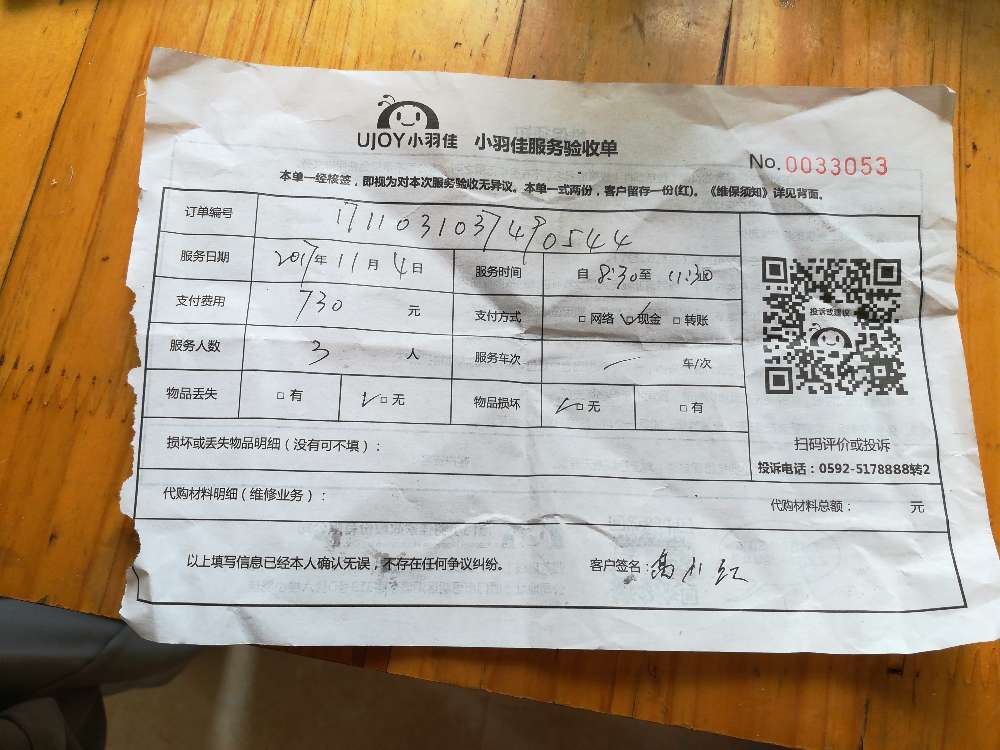 UJOY小羽佳 小羽佳服务验收单
No.0033053
本单一经核签，即视为对本次服务验收无异议。本单一式两份，客户留存一份(红)。《维保须知》详见背面。
订单编号 1711031037490544
服务日期 2017年11月4日 服务时间 自8:30至11:30
支付费用 730元 支付方式 □网络 □现金 □转账
投诉或建议
服务人数 3人 服务车次 车/次
物品丢失 □有 □无 物品损坏 □无 □有
损坏或丢失物品明细（没有可不填）：
扫码评价或投诉
投诉电话：0592-5178888转2
代购材料明细（维修业务）： 代购材料总额： 元
以上填写信息已经本人确认无误，不存在任何争议纠纷。 客户签名：高小红